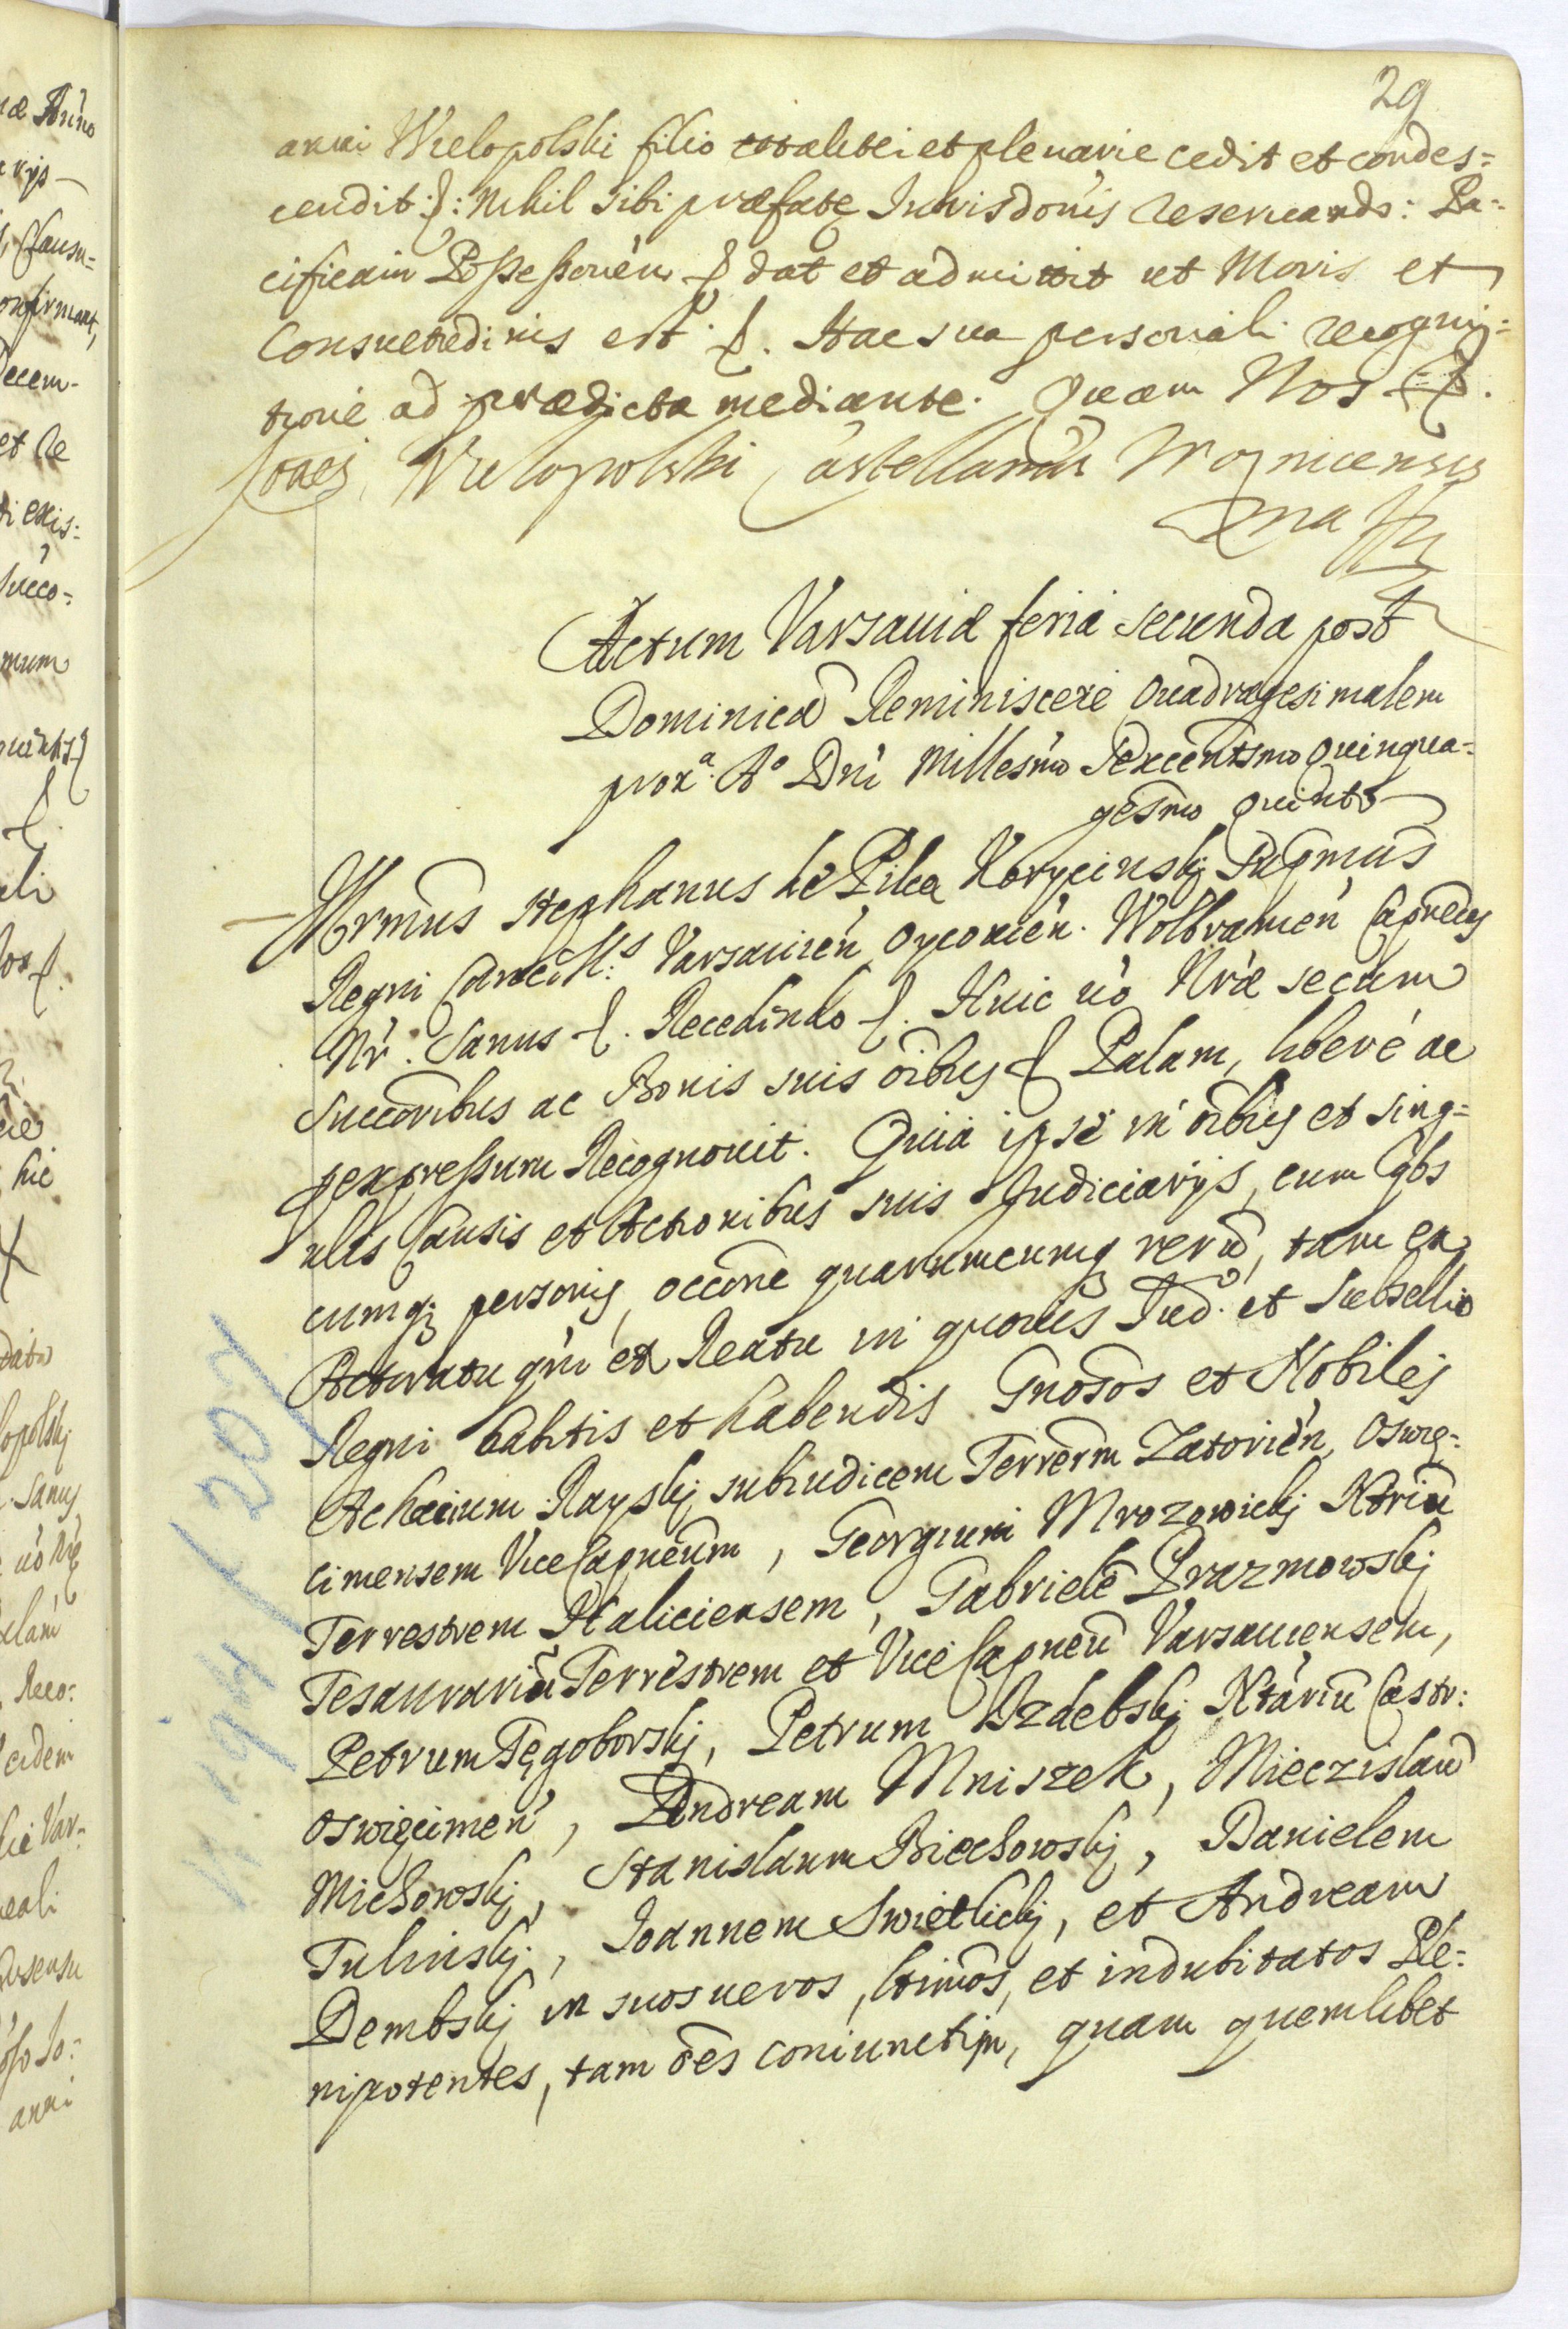 29
anni Wielopolski filio totaliter et plenarie cedit et condes=
cendit: Nihil sibi præfatæ Jurisdonis reseruando: Pa=
cificam Possessionẽ dat et admittit ut Moris et
Consuetudinis est. Hac sua personali recogni=
tione ad prædicta mediante. Quam Nos
Joaēs Wielopolski Castellanus Woynicensis
mp
Actum Varsauiæ feria secunda post
Dominicã Reminiscere Quadragesimalem
proxª Aº Dni Millesmo Sexcentesmo Quinqua=
gesmo Quinto
Illrmūs Stephanus de Pilca Korycinskj Supmūs
Regni Canc: Varsauień Oycouień. Wolbramień Capneus
Nr. Sanus Recedendo Huic uo Nræ secum
Succoribus ac Bonis suis oibus Palam, liberè ac
p expressum Recognouit. Quia ipse in oibus et sing=
ulis Causis et Actionibus suis Judiciarijs, cum qbs
cumq; personis, occõne quarumcunq rerũ, tam ex
Actoratu qm ex Reatu in quouis Jud: et Subsellio
Regni habitis et habendis Gnosos et Nobiles
Achacium Rayskj subiudicem Terrarm Zatorień, Oswię=
cimensem ViceCapneum, Georgium Mrozowickj Ntriũ
Terrestrem Haliciensem, Gabrielẽ Prazmowskj
Tesaurariũ Terrestrem et ViceCapneũ Varsauiensem,
Petrum Tęgoborskj, Petrum Izdebskj Ntariũ Castr:
Oswięcimeń, Andream Mniszek, Mieczislaũ
Michowskj, Stanislaum Biechowskj, Danielem
Tulinskj, Joannem Swietlickj, et Andream
Dembskj in suos ueros, ltimos, et indubitatos Ple=
nipotentes, tam oēs coniunctim, quam quemlibet